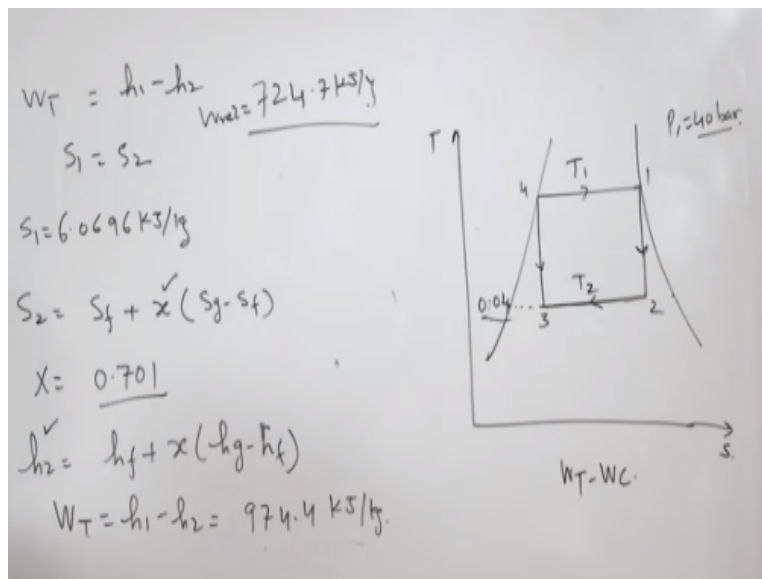 WT = h1-h2
Wnet = 724.7 KJ/kg
S1 = S2
S1 = 6.0696 KJ/kg
S2 = Sf + x (Sg-Sf)
X = 0.701
h2 = hf + x (hg-hf)
WT = h1-h2 = 974.4 KJ/kg.
P1=40 bar.
T
T1
4
1
T2
0.04
3
2
S.
WT-WC.